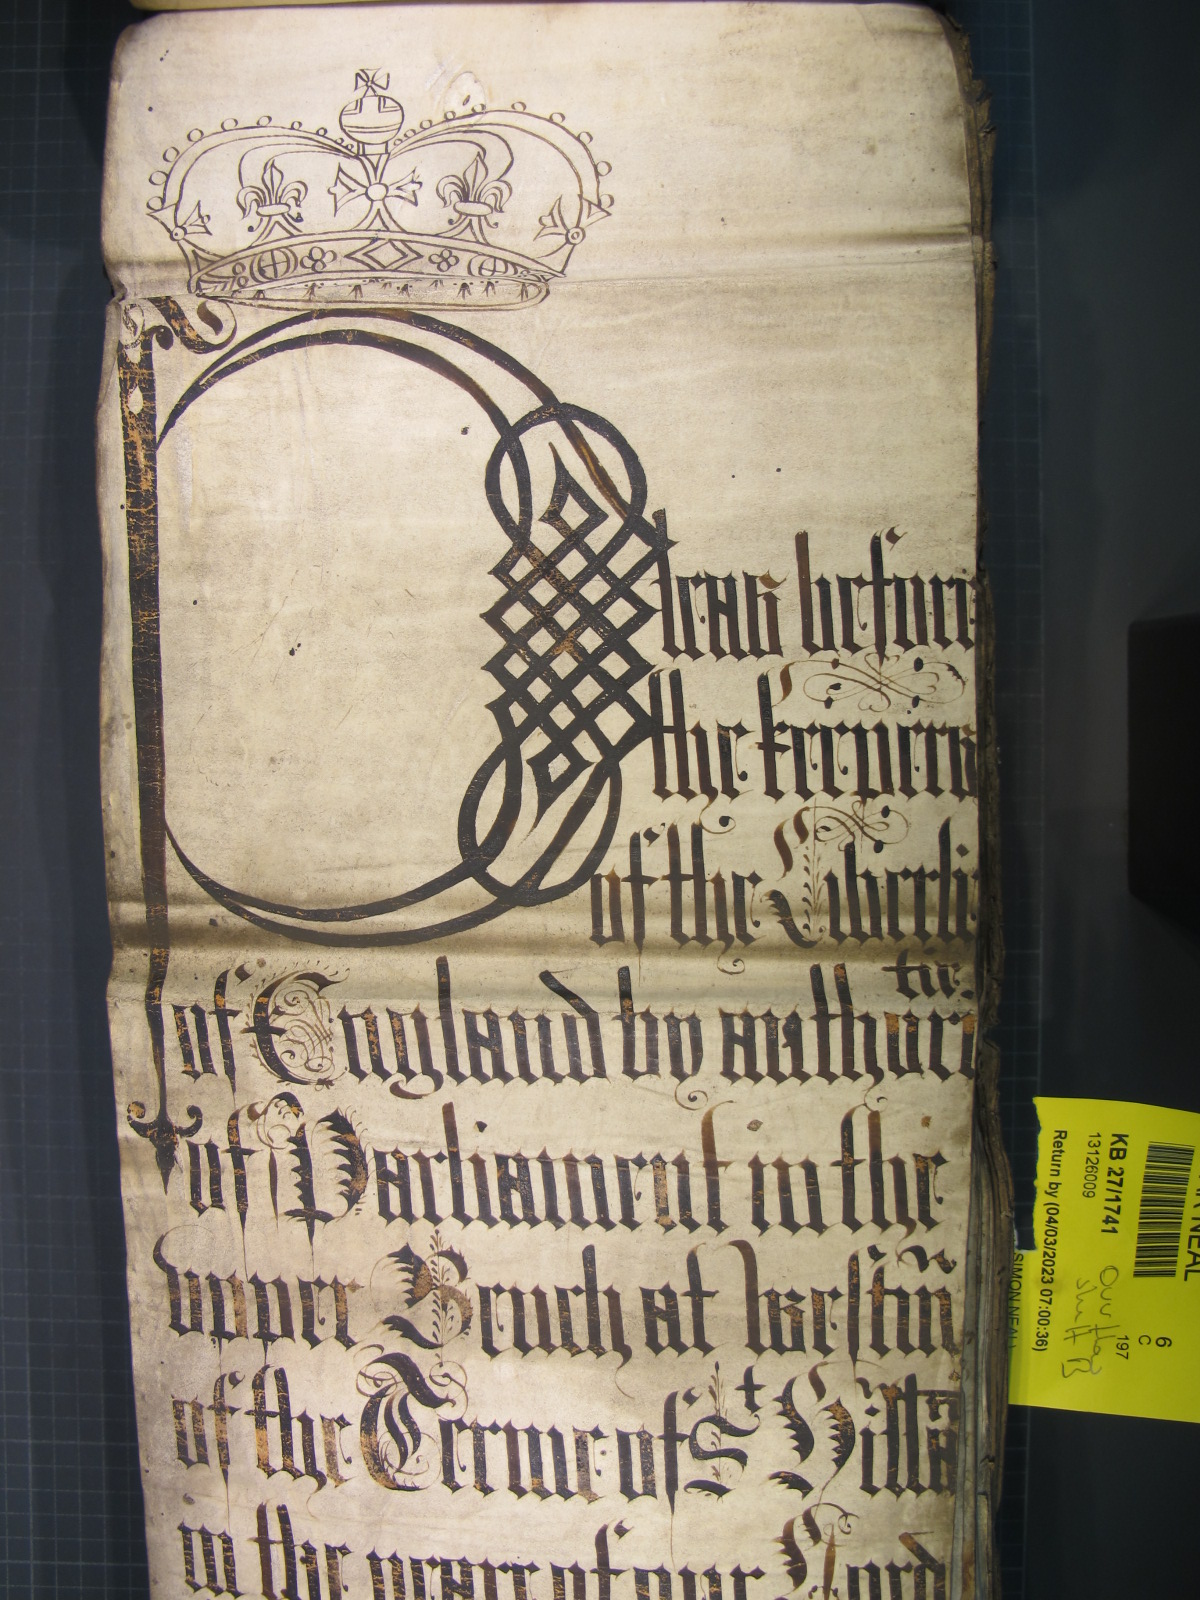 Pleas before
the keepers
of the Liberti
tie
of England by authori
of Parliament in the
upper Bench at Westm
of the Terme of St Hilla
in the yeare of our Lord
KB 27/1741
13126009
Return by (04/03/2023 07:00:36)
6
C
197
SIMON NEAL